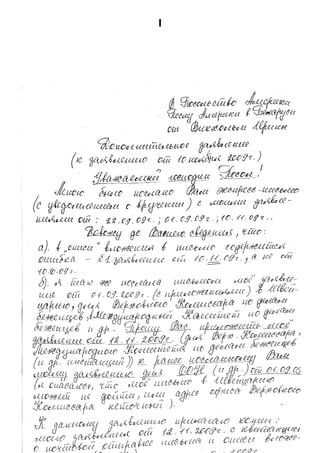 В Посольство Америки
Послу Америки в Беларуси
от
Дополнительное заявление
(к заявлению от 10 ноября 2009г.)
Уважаемый господин Посол!
Мною было послано Вам экспресс-письмо
(с уведомлением о вручении) с моими заявле-
ниями от: 22.09.09г.; 01.09.09г.; 10.11.09г..
Довожу до Вашего сведения, что:
а). в "описи" вложения в письмо содержится
ошибка - заявление от 10.11.09г., а не от
10.10.09г.
б). я так же послала письмом моё заявле-
ние от 01.09.2009г. (с приложениями) в Швей-
царию, для Верховного Комиссара по делам
беженцев, в Международный Комитет по делам
беженцев и др. Прошу Вас приложить моё
заявление от 12.11.2009г. (для Верх. Комиссара,
Международного Комитета по делам беженцев
(и др. инстанций)) к ранее посланному Вам
моему заявлению для (и др.) от 01.09.09
(я опасаюсь, что моё письмо в Швейцарию
может не дойти, или адрес офиса Верховного
Комиссара неточный).
К данному заявлению прилагаю копии:
моего заявления от 12.11.2009г. с квитанцией
о почтовой отправке письма и описи вложе-